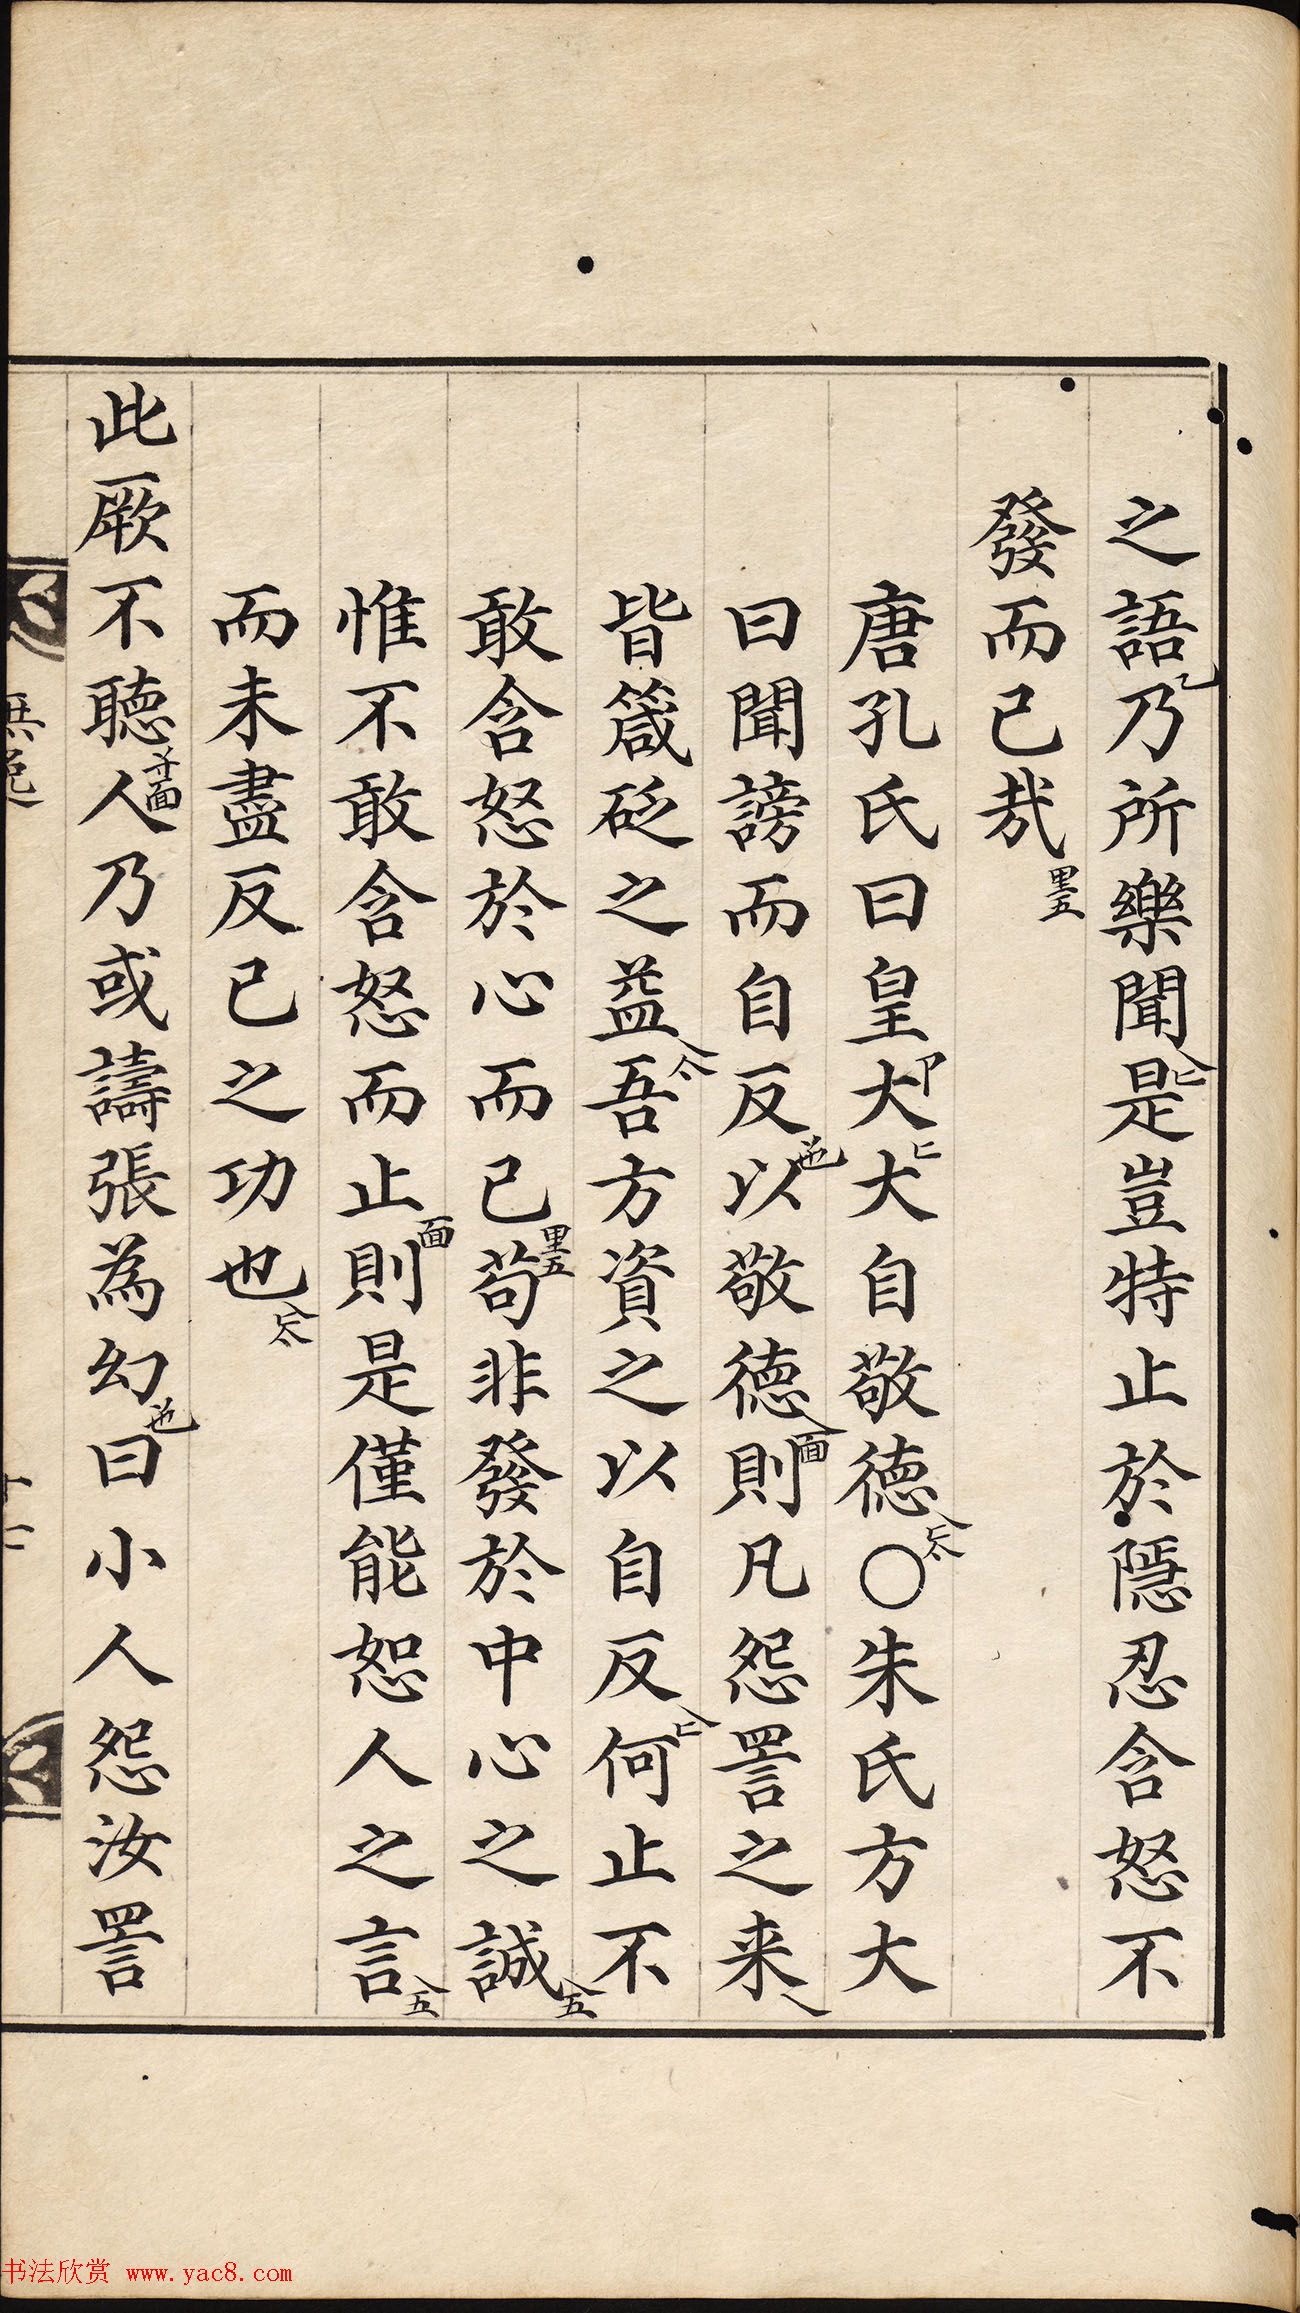 之語乃所樂聞是豈特止於隱忍含怒不
發而已哉
唐孔氏曰皇大大自敬德○朱氏方大
曰聞謗而自反以敬德則凡怨詈之来
皆箴砭之益吾方資之以自反何止不
敢含怒於心而已苟非發於中心之誠
惟不敢含怒而止則是僅能恕人之言
而未盡反己之功也
此厥不聽人乃或譸張為幻曰小人怨汝詈
書法欣赏 www.yac8.com